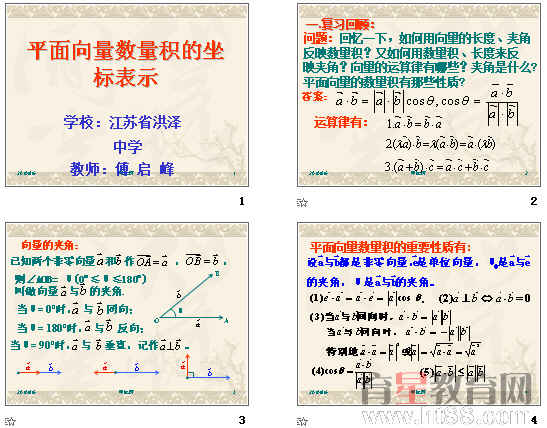 平面向量数量积的坐
标表示
学校：江苏省洪泽
中学
教师：傅 启 峰
1
一.复习回顾：
问题：回忆一下，如何用向量的长度、夹角
反映数量积？又如何用数量积、长度来反
映夹角？向量的运算律有哪些？夹角是什么？
平面向量的数量积有那些性质？
答案： a·b=|a||b|cosθ, cosθ= a·b / |a||b|
运算律有： 1.a·b=b·a
2.(λa)·b=λ(a·b)=a·(λb)
3.(a+b)·c=a·c+b·c
2
2
向量的夹角：
已知两个非零向量a和b 作OA=a ， OB=b ，
则∠AOB= θ (0°≤ θ ≤180°)
叫做向量a与b的夹角.
当 θ = 0°时，a与b同向；
当 θ = 180°时，a与b反向；
当 θ = 90°时，a与b垂直，记作a⊥b 。
B
b
O a A
a b a b a b
3
平面向量数量积的重要性质有：
设a与b都是非零向量，e是单位向量，
(1)e·a=a·e=|a|cosθ. (2)a⊥b⇔a·b=0
(3)当a与b同向时，a·b=|a||b|
当a与b反向时，a·b=-|a||b|
特别地 a·a=|a|²或|a|=√a·a=√a²
(4)cosθ= a·b / |a||b| (5)|a·b|≤|a||b|
育星教育网
www.ht88.com
4